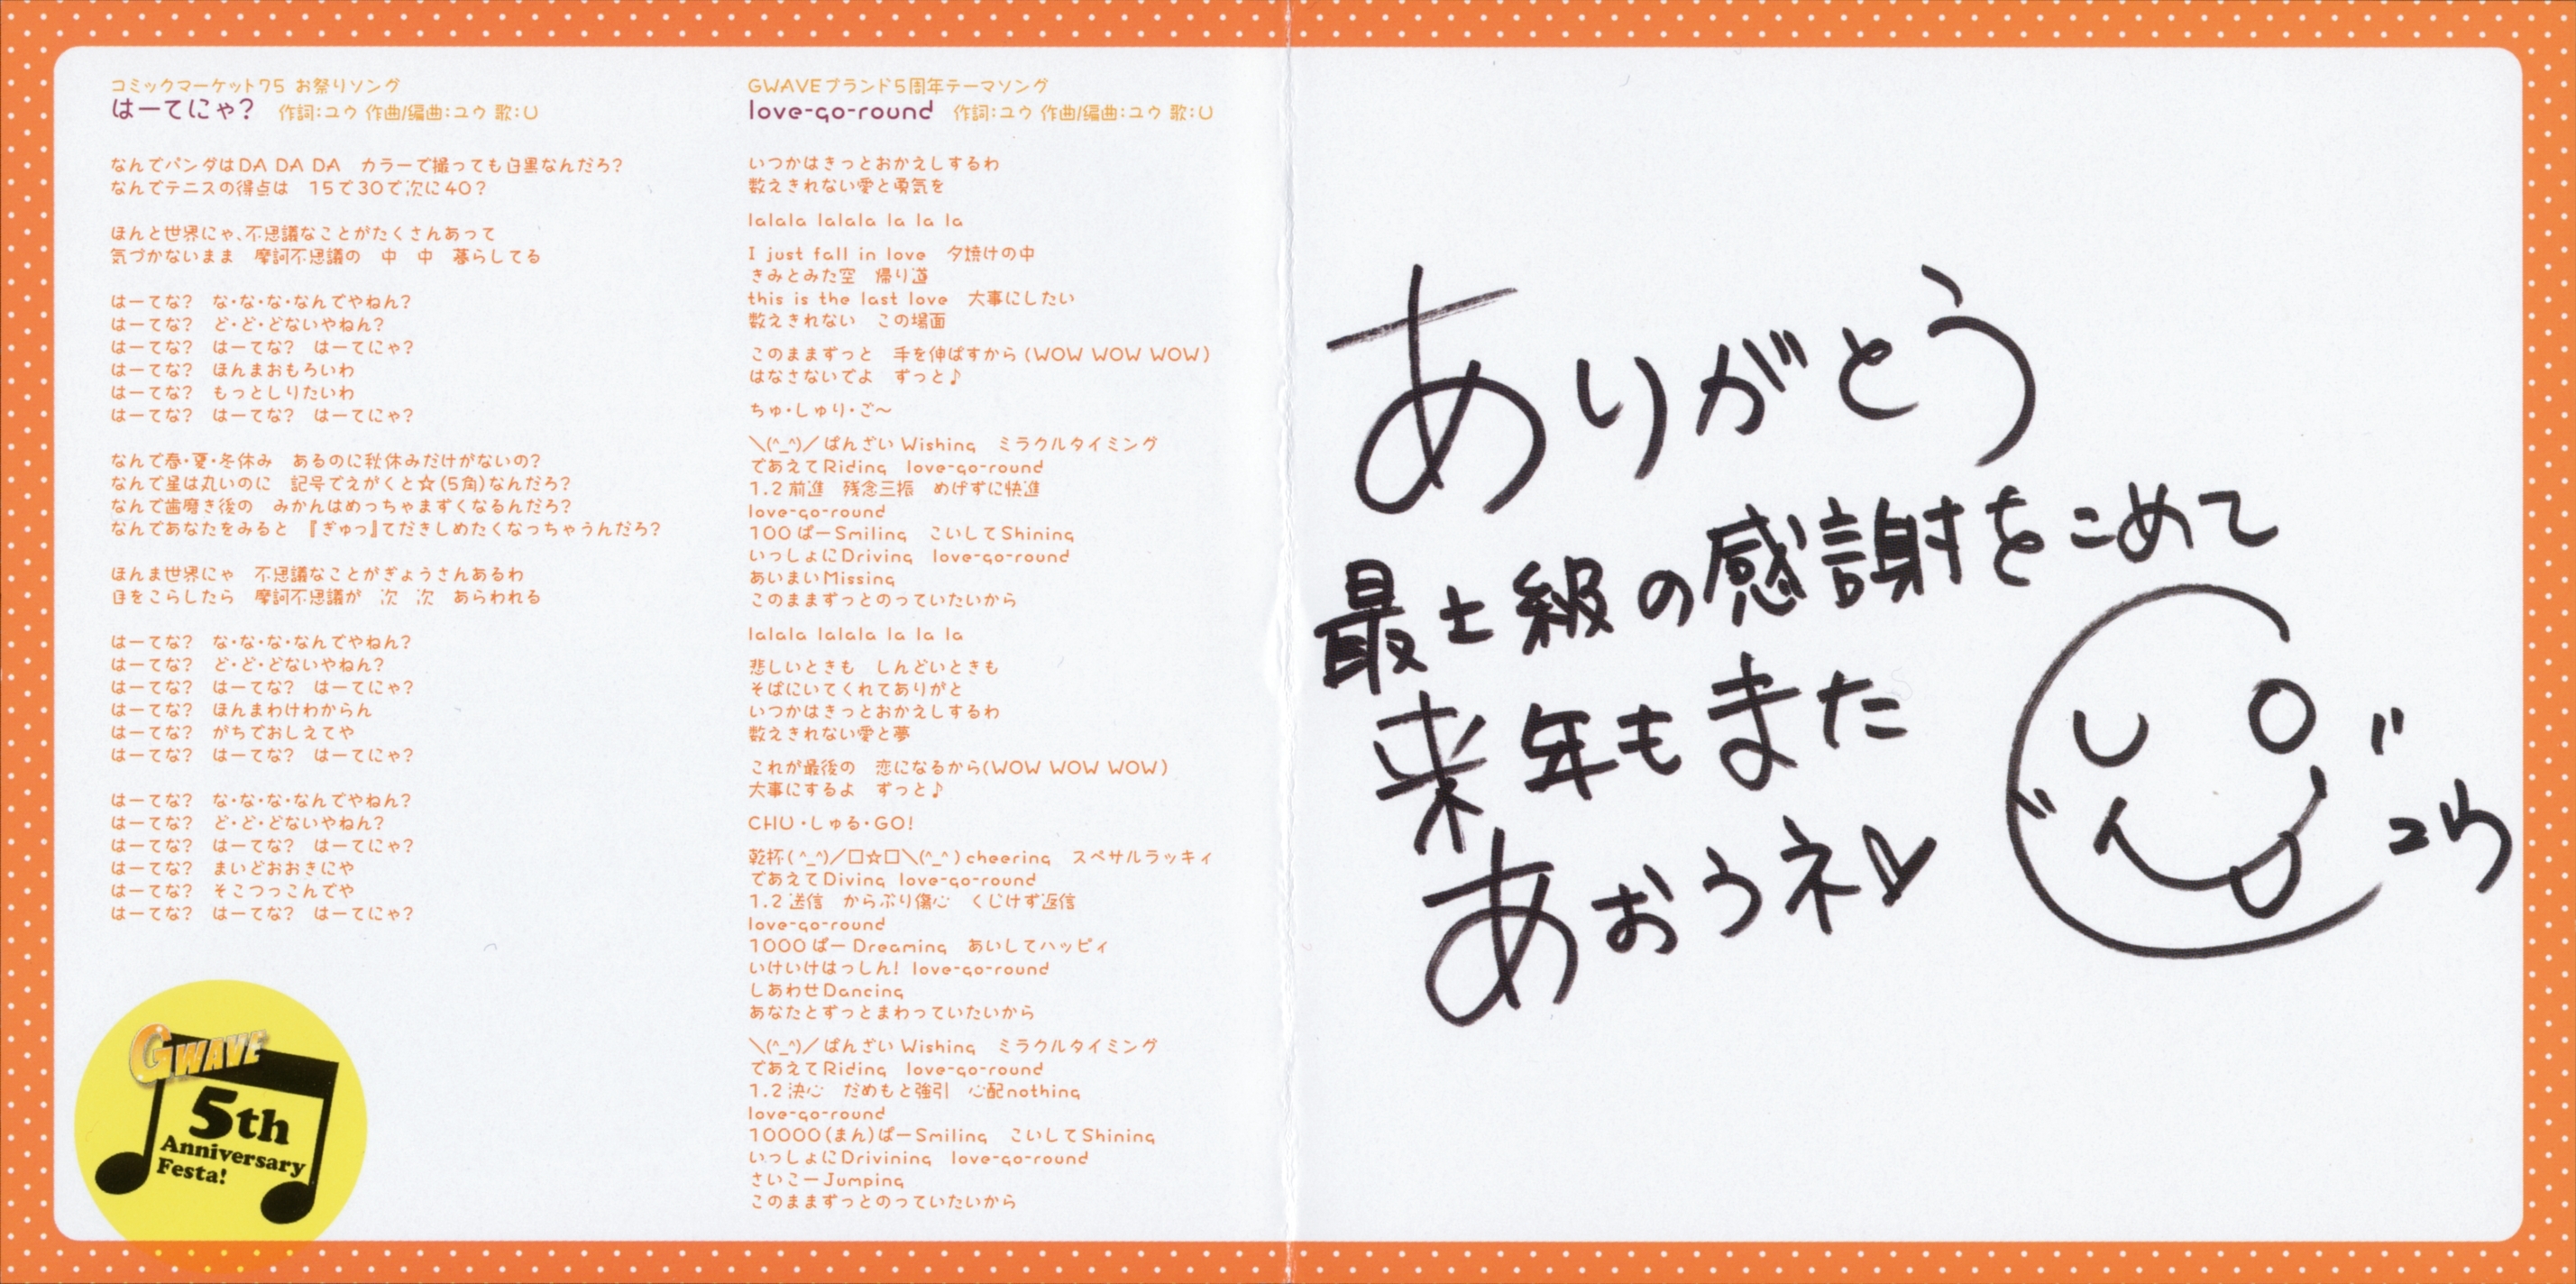 コミックマーケット75 お祭りソング
はーてにゃ? 作詞:ユウ 作曲/編曲:ユウ 歌:U
なんでパンダはDA DA DA カラーで撮っても白黒なんだろ?
なんでテニスの得点は 15で30で次に40?
ほんと世界にゃ、不思議なことがたくさんあって
気づかないまま 摩訶不思議の 中 中 暮らしてる
はーてな? な・な・な・なんでやねん?
はーてな? ど・ど・どないやねん?
はーてな? はーてな? はーてにゃ?
はーてな? ほんまおもろいわ
はーてな? もっとしりたいわ
はーてな? はーてな? はーてにゃ?
なんで春・夏・冬休み あるのに秋休みだけがないの?
なんで星は丸いのに 記号でえがくと☆(5角)なんだろ?
なんで歯磨き後の みかんはめっちゃまずくなるんだろ?
なんであなたをみると 『ぎゅっ』てだきしめたくなっちゃうんだろ?
ほんま世界にゃ 不思議なことがぎょうさんあるわ
目をこらしたら 摩訶不思議が 次 次 あらわれる
はーてな? な・な・な・なんでやねん?
はーてな? ど・ど・どないやねん?
はーてな? はーてな? はーてにゃ?
はーてな? ほんまわけわからん
はーてな? がちでおしえてや
はーてな? はーてな? はーてにゃ?
はーてな? な・な・な・なんでやねん?
はーてな? ど・ど・どないやねん?
はーてな? はーてな? はーてにゃ?
はーてな? まいどおおきにや
はーてな? そこつっこんでや
はーてな? はーてな? はーてにゃ?
GWAVE
5th
Anniversary
Festa!
GWAVEブランド5周年テーマソング
love-go-round 作詞:ユウ 作曲/編曲:ユウ 歌:U
いつかはきっとおかえしするわ
数えきれない愛と勇気を
lalala lalala la la la
I just fall in love 夕焼けの中
きみとみた空 帰り道
this is the last love 大事にしたい
数えきれない この場面
このままずっと 手を伸ばすから(WOW WOW WOW)
はなさないでよ ずっと♪
ちゅ・しゅり・ご〜
＼(^_^)／ばんざい Wishing ミラクルタイミング
であえてRiding love-go-round
1.2 前進 残念三振 めげずに快進
love-go-round
100 ぱーSmiling こいしてShining
いっしょにDriving love-go-round
あいまいMissing
このままずっとのっていたいから
lalala lalala la la la
悲しいときも しんどいときも
そばにいてくれてありがと
いつかはきっとおかえしするわ
数えきれない愛と夢
これが最後の 恋になるから(WOW WOW WOW)
大事にするよ ずっと♪
CHU・しゅる・GO!
乾杯( ^_^)／□☆□＼(^_^ ) cheering スペサルラッキィ
であえてDiving love-go-round
1.2 送信 からぶり傷心 くじけず返信
love-go-round
1000 ぱー Dreaming あいしてハッピィ
いけいけはっしん! love-go-round
しあわせDancing
あなたとずっとまわっていたいから
＼(^_^)／ばんざい Wishing ミラクルタイミング
であえてRiding love-go-round
1.2 決心 だめもと強引 心配nothing
love-go-round
10000(まん)ぱーSmiling こいしてShining
いっしょにDrivining love-go-round
さいこーJumping
このままずっとのっていたいから
ありがとう
最上級の感謝をこめて
来年もまた
あおうネ♡
ユウ